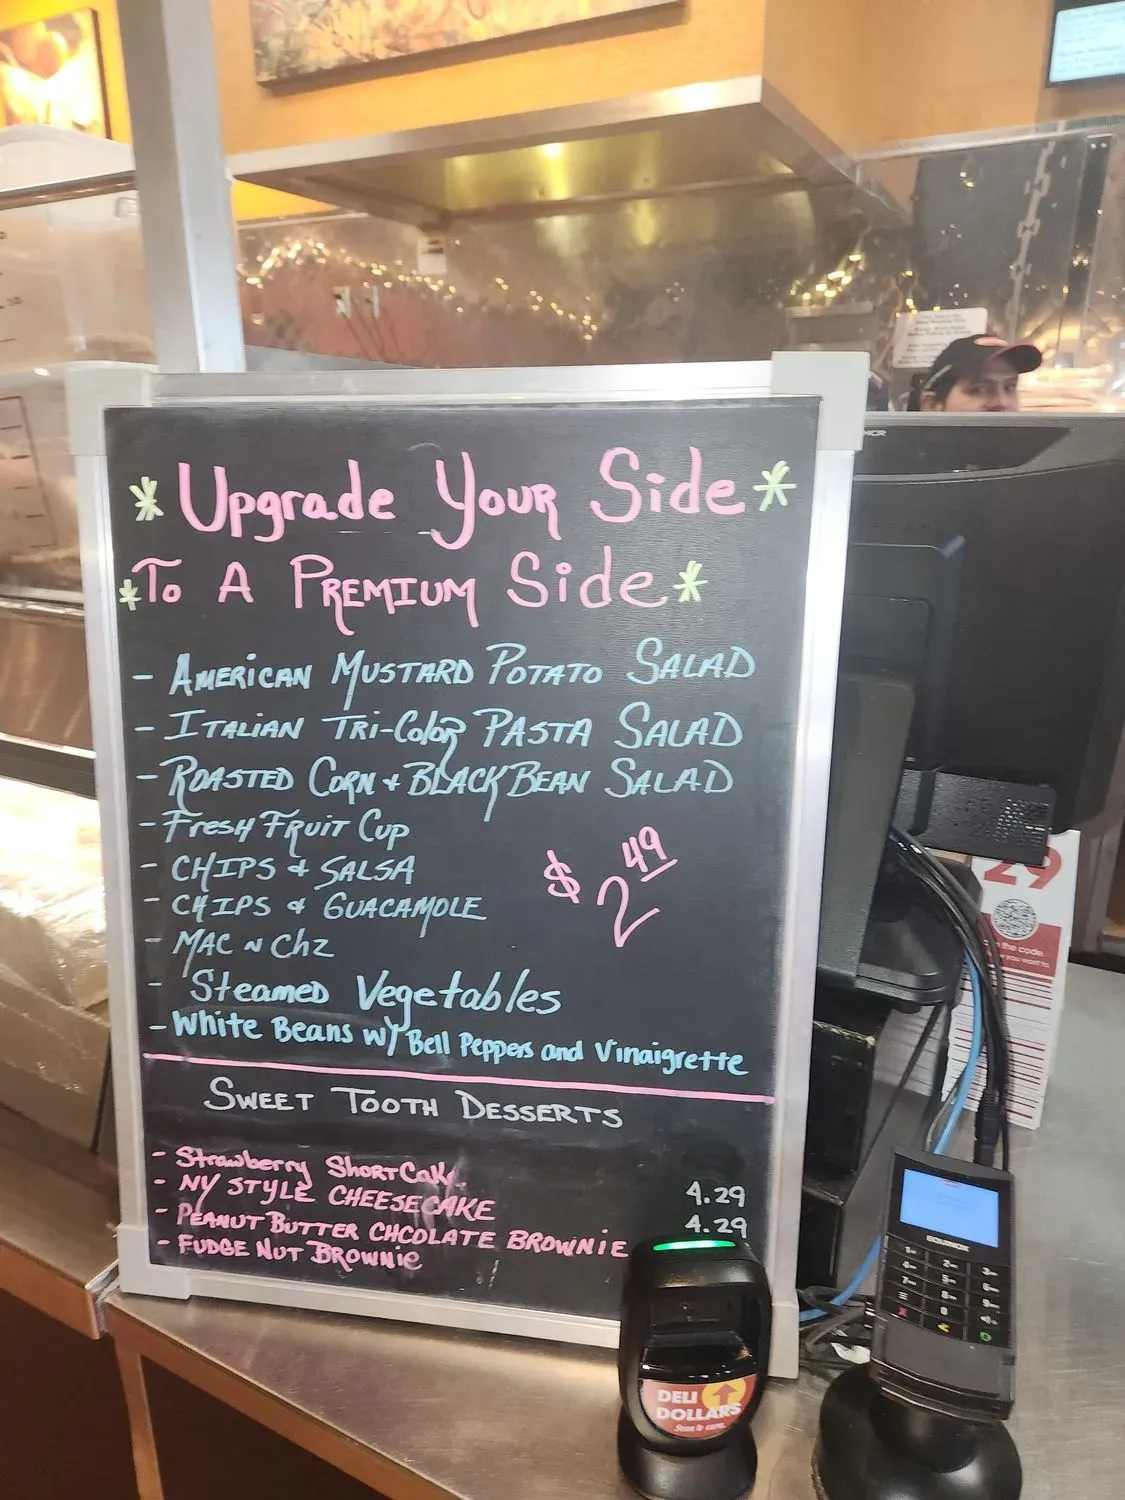 * Upgrade Your Side *
* To A Premium Side *
- American Mustard Potato Salad
- Italian Tri-Color Pasta Salad
- Roasted Corn + Black Bean Salad
- Fresh Fruit Cup
- Chips & Salsa
- Chips & Guacamole
- Mac n Chz
- Steamed Vegetables
- White Beans w/ Bell Peppers and Vinaigrette
$ 2 49
Sweet Tooth Desserts
- Strawberry ShortCake
- NY Style Cheesecake 4.29
- Peanut Butter Chcolate Brownie 4.29
- Fudge Nut Brownie
DELI
DOLLARS
Scan to earn.
EQUINOX
29
the code